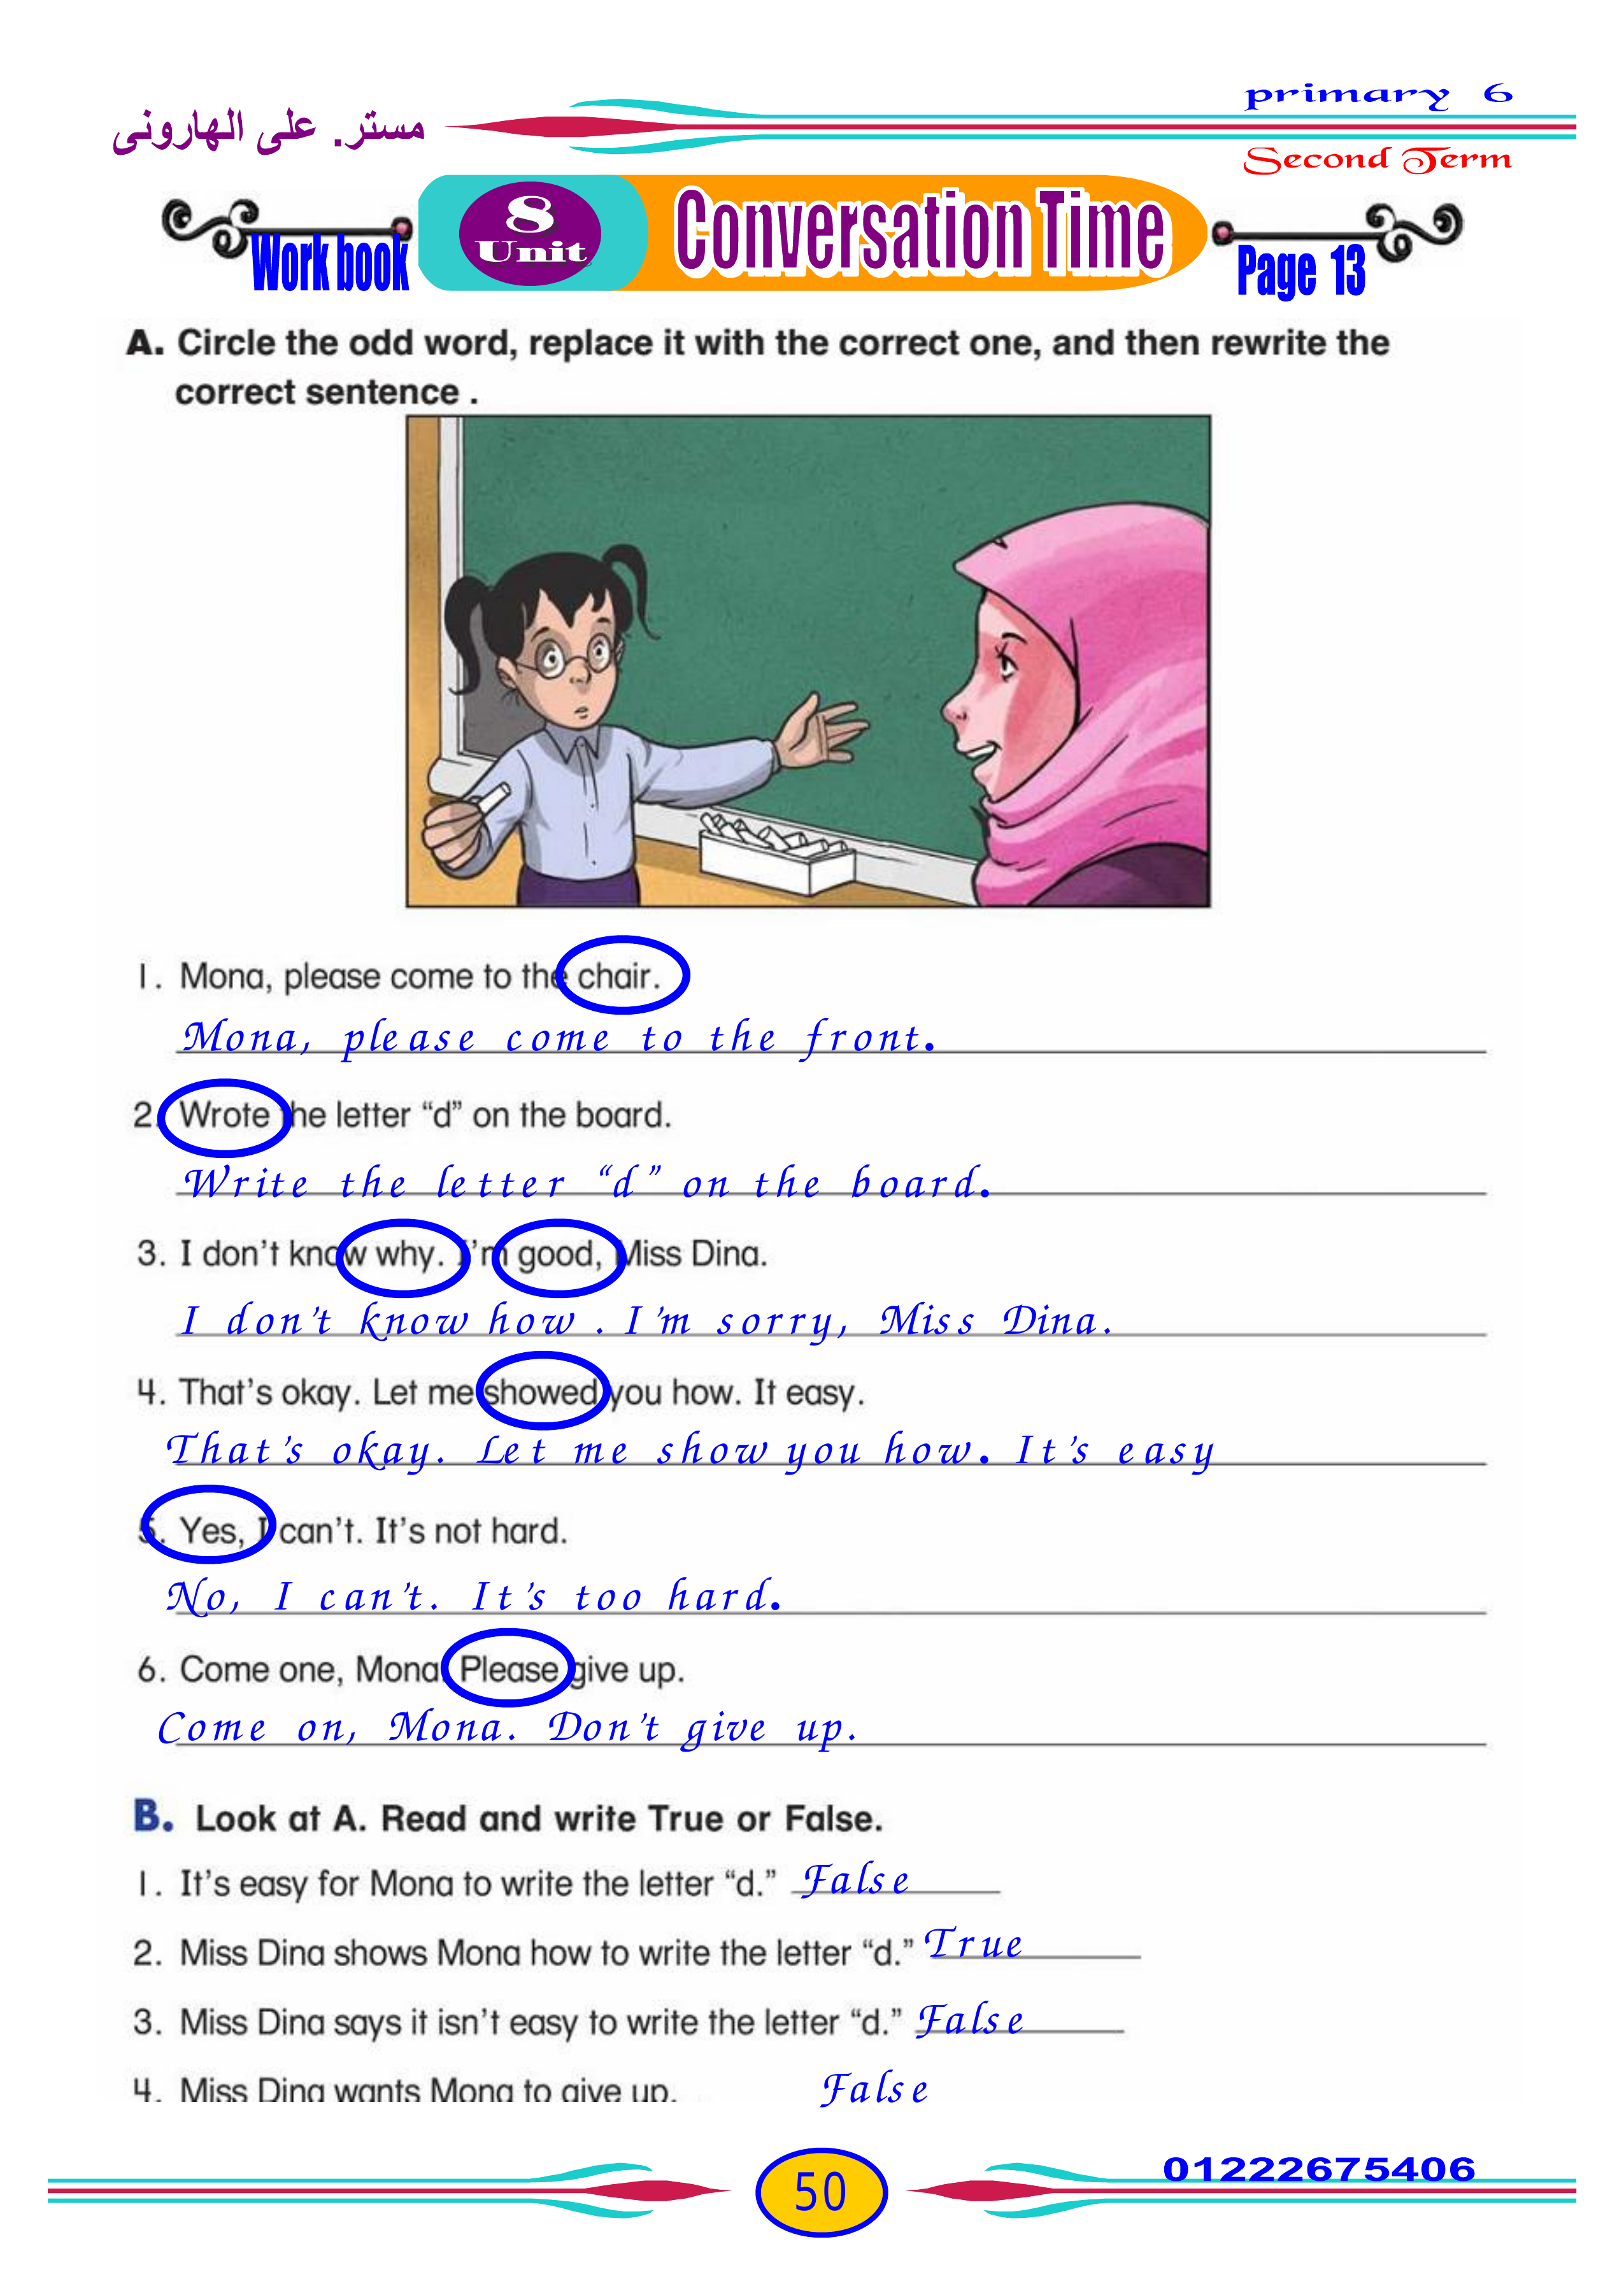 primary 6
مستر. على الهارونى
Second Term
8
Unit
Conversation Time
Work book
Page 13
A. Circle the odd word, replace it with the correct one, and then rewrite the
correct sentence .
1. Mona, please come to the chair.
Mona, please come to the front.
2. Wrote the letter “d” on the board.
Write the letter “d” on the board.
3. I don’t know why. I’m good, Miss Dina.
I don’t know how . I’m sorry, Miss Dina.
4. That’s okay. Let me showed you how. It easy.
That’s okay. Let me show you how. It’s easy
5. Yes, I can’t. It’s not hard.
No, I can’t. It’s too hard.
6. Come one, Mona. Please give up.
Come on, Mona. Don’t give up.
B. Look at A. Read and write True or False.
1. It’s easy for Mona to write the letter “d.” False
2. Miss Dina shows Mona how to write the letter “d.” True
3. Miss Dina says it isn’t easy to write the letter “d.” False
4. Miss Dina wants Mona to give up. False
50
01222675406